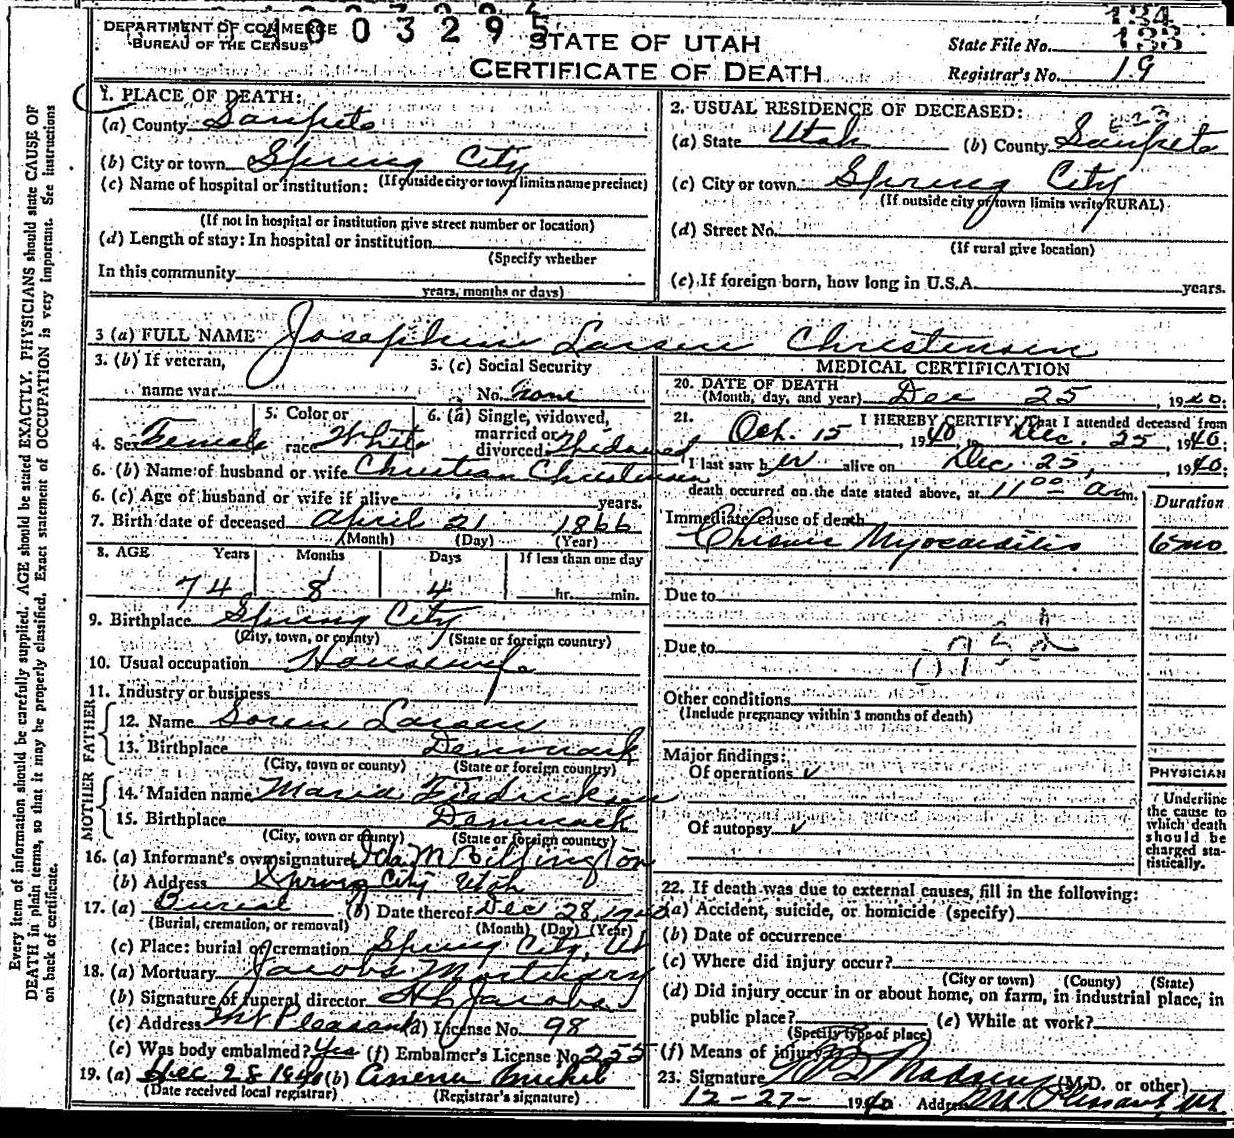 DEPARTMENT OF COMMERCE
BUREAU OF THE CENSUS
1003295
STATE OF UTAH
CERTIFICATE OF DEATH
134
State File No. 133
Registrar's No. 19
1. PLACE OF DEATH:
(a) County Sanpete
(b) City or town Spring City
(If outside city or town limits name precinct)
(c) Name of hospital or institution:
(If not in hospital or institution give street number or location)
(d) Length of stay: In hospital or institution
(Specify whether
In this community
years, months or days)
2. USUAL RESIDENCE OF DECEASED:
(a) State Utah (b) County Sanpete
(c) City or town Spring City
(If outside city or town limits write RURAL)
(d) Street No.
(If rural give location)
(e) If foreign born, how long in U.S.A. years.
3 (a) FULL NAME Josephine Larsen Christensen
3. (b) If veteran,
name war
3. (c) Social Security
No. none
4. Sex Female
5. Color or
race White
6. (a) Single, widowed,
married or
divorced Widowed
6. (b) Name of husband or wife Christian Christensen
6. (c) Age of husband or wife if alive years.
7. Birth date of deceased April 21 1866
(Month) (Day) (Year)
8. AGE Years Months Days If less than one day
74 8 4 hr. min.
9. Birthplace Spring City
(City, town, or county) (State or foreign country)
10. Usual occupation Housewife
11. Industry or business
FATHER
12. Name Soren Larsen
13. Birthplace Denmark
(City, town or county) (State or foreign country)
MOTHER
14. Maiden name Maria Fredrickson
15. Birthplace Denmark
(City, town or county) (State or foreign country)
16. (a) Informant's own signature Ida M Billington
(b) Address Spring City Utah
17. (a) Burial (b) Date thereof Dec 28, 1940
(Burial, cremation, or removal) (Month) (Day) (Year)
(c) Place: burial or cremation Spring City, Ut
18. (a) Mortuary Jacobs Mortuary
(b) Signature of funeral director Jacobs
(c) Address Mt Pleasant (d) License No. 98
(e) Was body embalmed? Yes (f) Embalmer's License No. 255
19. (a) Dec 28 1940 (b)
(Date received local registrar) (Registrar's signature)
MEDICAL CERTIFICATION
20. DATE OF DEATH
(Month, day, and year) Dec 25, 1940:
21. I HEREBY CERTIFY, That I attended deceased from
Oct. 15, 1940 to Dec. 25 1940:
I last saw her alive on Dec 25, 1940:
death occurred on the date stated above, at 11 00 a m.
Duration
Immediate cause of death
Chronic Myocarditis 6 mo.
Due to
Due to
Other conditions
(Include pregnancy within 3 months of death)
Major findings:
Of operations
Of autopsy
PHYSICIAN
Underline
the cause to
which death
should be
charged sta-
tistically.
22. If death was due to external causes, fill in the following:
(a) Accident, suicide, or homicide (specify)
(b) Date of occurrence
(c) Where did injury occur?
(City or town) (County) (State)
(d) Did injury occur in or about home, on farm, in industrial place, in
public place? (e) While at work?
(Specify type of place)
(f) Means of injury
23. Signature Madsen (M.D. or other)
12-27- 1940 Address Mt Pleasant, Ut
Every item of information should be carefully supplied. AGE should be stated EXACTLY. PHYSICIANS should state CAUSE OF
DEATH in plain terms, so that it may be properly classified. Exact statement of OCCUPATION is very important. See instructions
on back of certificate.